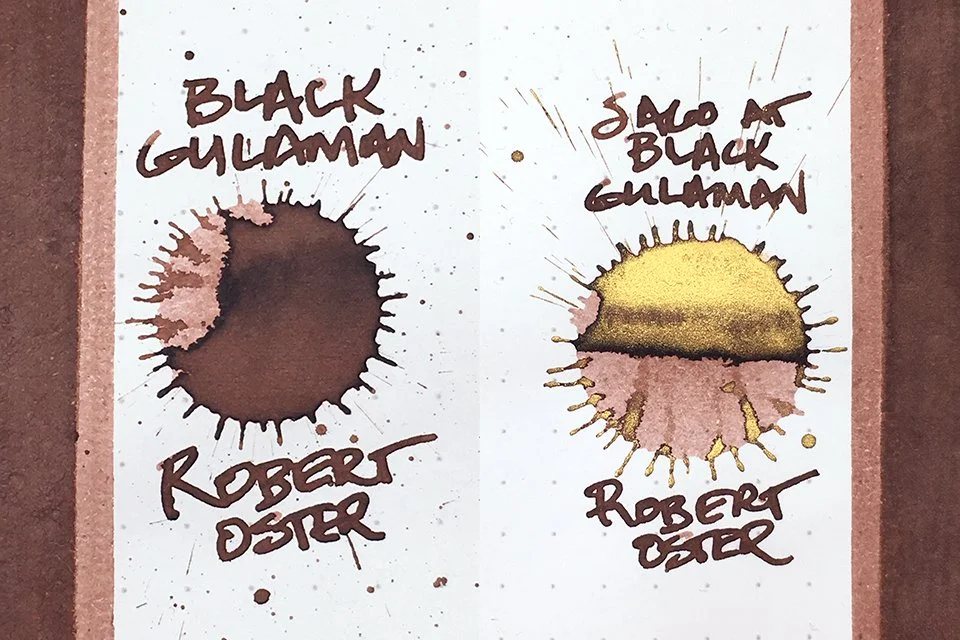 BLACK
GULAMAN
ROBERT
OSTER
SAGO AT
BLACK
GULAMAN
ROBERT
OSTER